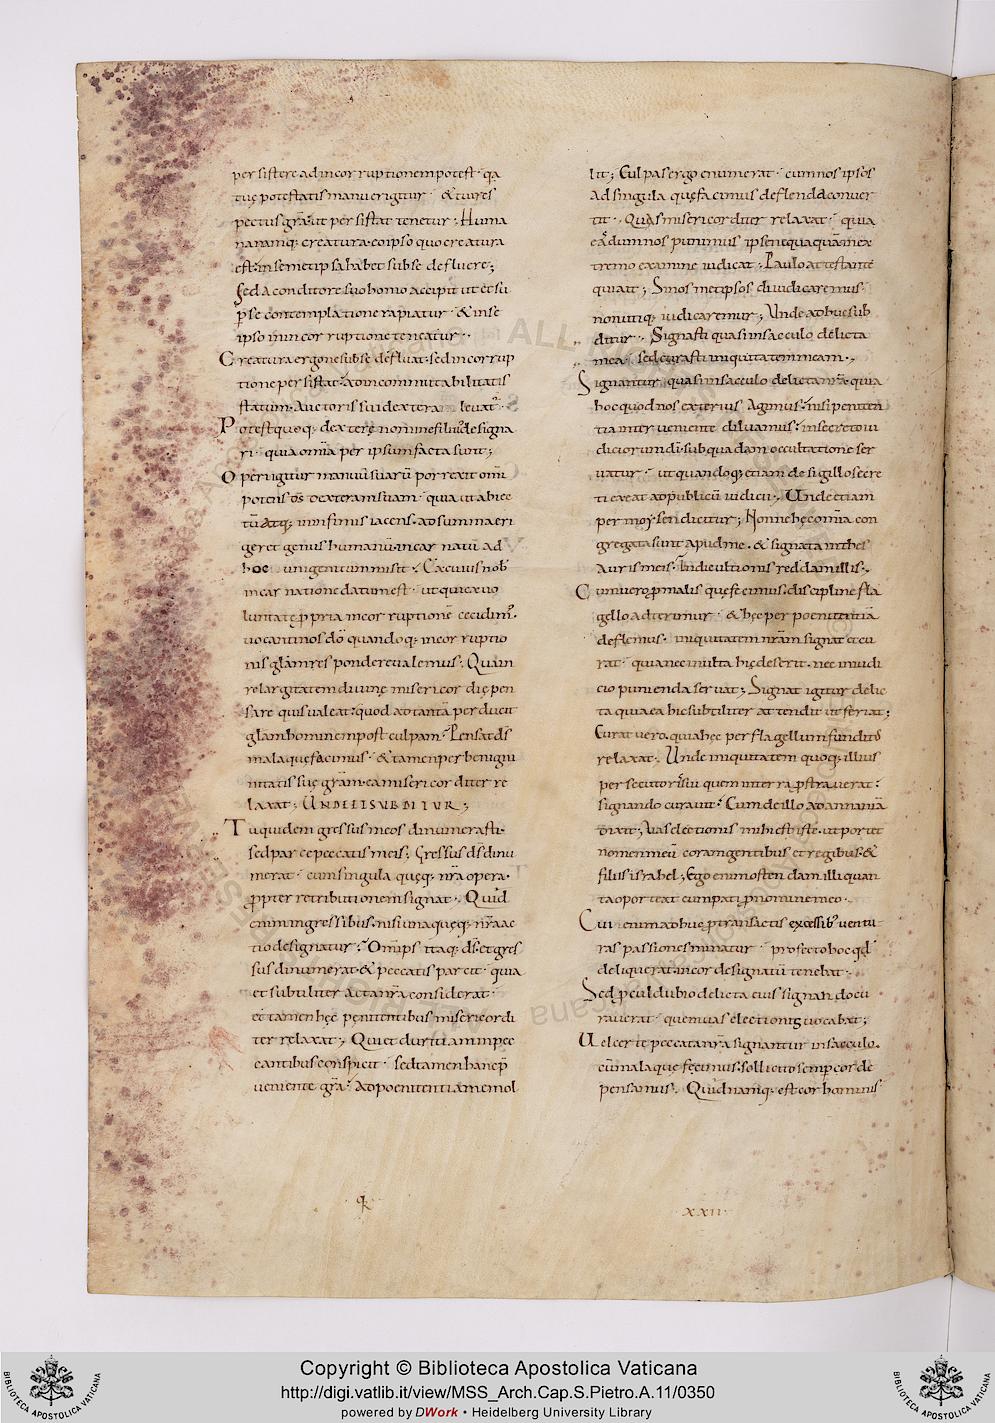 persistere ad incorruptionem potest· qa
tuę potestatis manu erigitur· & tu res
pectus grã· ut persistat tenetur; Huma
na namq; creatura eo ipso quo creatura
est· in semetipsa habet sub se defluere;
Sed a conditore suo homo accipit ut et su
p se contemplatione rapiatur· & in se
ipso in incorruptione teneatur··
Creatura ergo ne sub se defluat· sed in corrup
tione persistat· ad incommutabilitatis
statum· Auctoris sui dextera leuat̃·
Potest quoq; dexterę nomine filius designa
ri· quia om̃ia per ipsum facta sunt;
Operi igitur manuũ suarũ porrexit om̃i
potens d̃s dexteram suam· quia ut abiec
tũ atq; in infimis iacens· ad summa eri
geret genus humanũ· incarnatũ ad
hoc unigenitum misit· Ex cuius nob̃
incarnatione datum est· ut qui ex uo
luntate ppria in corruptionẽ cecidim̃·
uocanti nos dõ quandoq; incorruptio
nis glãm respondere ualemus; Quam
relargitatem diuinę misericordię pen
sare quis ualeat· quod ad tantã perducit
glam hominem post culpam· Pensat d̃s
mala quę facimus· & tamen per benigni
nitatis suę grãm· ea misericorditer re
laxat; UNDE ET SUBDITUR;
Tu quidem gressus meos dinumerasti·
sed parce peccatis meis; Gressus d̃s dinu
merat· cum singula quęq; nr̃a opera·
ppter retributionem signat· Quid
enim in gressibus· nisi una quęq; nr̃a ac
tio designatur· Omps itaq; d̃s· et gres
sus dinumerat· & peccatis parcit· quia
et subtiliter acta nr̃a considerat·
et tamen hęc pęnitentibus misericordi
ter relaxat; Qui et duritiam in pec
cantibus conspicit· sed tamen hanc p
ueniente grã· Ad poenitentiam emol
lit; Culpas ergo enumerat· cum nos ipsos
ad singula quę facimus deflenda conuer
tit· Quas misericorditer relaxat· quia
eã dum nos punimus ipse nequaquã in ex
tremo examine iudicat· Paulo attestante
qui ait; Si nos metipsos diiudicaremus·
non utiq; iudicaremur; Unde adhuc sub
ditur· Signasti quasi in saeculo delicta
mea· sed curasti iniquitatem meam·
Signantur quasi in sacculo delicta nr̃a· quia
hoc quod nos exterius Agimus· nisi peniten
tia interueniente diluamus· in secreto iu
diciorum dĩ· sub quadam occultatione ser
uatur· ut quandoq; etiam de sigillo secre
ti exeat ad publicũ iudicii· Unde etiam
per moysen dicitur; Nonne hęc om̃ia con
gregata sunt apud me· & signata in thes
auris meis· In die ultionis reddam illis·
Cum uero p malis quę fecimus· disciplinę fla
gello adterimur· & hęc per poenitentiã
deflemus· iniquitatem nr̃am signat et cu
rat· quia nec inulta hic deserit· nec in iudi
cio punienda seruat; Signat igitur delic
ta quia ea hic subtiliter attendit ut feriat;
Curat uero· quia hęc per flagellum funditus
relaxat· Unde iniquitatem quoq; illius
persecutoris sui quem in terra pstrauerat·
signando curauit· Cum de illo ad annaniã
dixit; Uas electionis mihi est iste· ut portet
nomen meũ coram gentibus et regibus· &
filiis israhel; Ego enim ostendam illi quan
ta oporteat eum pati p nomine meo·
Cui enim adhuc p transactis excessib; ventu
ras passiones minatur· profecto hoc qd
deliquerat· in cor designatũ tenebat·
Sed pcul dubio delicta eius signan do cu
rauerat· quem uas electionis uocabat;
Uel certe peccata nr̃a signantur in sacculo·
cũ mala quę fecimus· sollicito semp corde
pensamus· Quid namq; est cor hominis
XXII·
Copyright © Biblioteca Apostolica Vaticana
http://digi.vatlib.it/view/MSS_Arch.Cap.S.Pietro.A.11/0350
powered by DWork • Heidelberg University Library
BIBLIOTECA APOSTOLICA VATICANA
BIBLIOTECA APOSTOLICA VATICANA